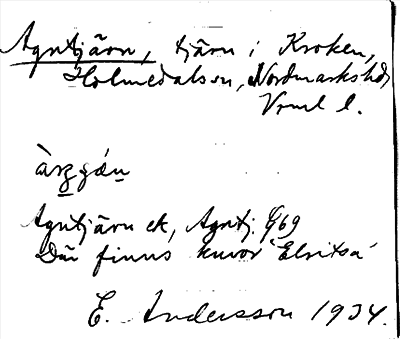 Agntjärn, tjärn i Kroken,
Holmedals sn, Nordmarks hd,
Vrml l.
Agntjärn ek, Agntj. G69
Där finns kuvor 'Elritsa'
E. Andersson 1934.